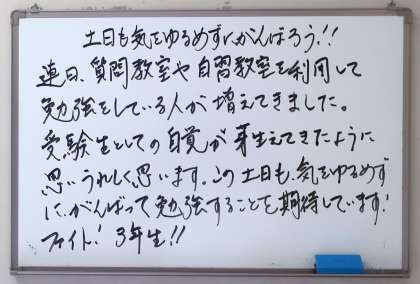 土日も気をゆるめずにがんばろう!!
連日、質問教室や自習教室を利用して
勉強をしている人が増えてきました。
受験生としての自覚が芽生えてきたように
思いうれしく思います。この土日も、気をゆるめず
に、がんばって勉強することを期待しています!
ファイト! 3年生!!